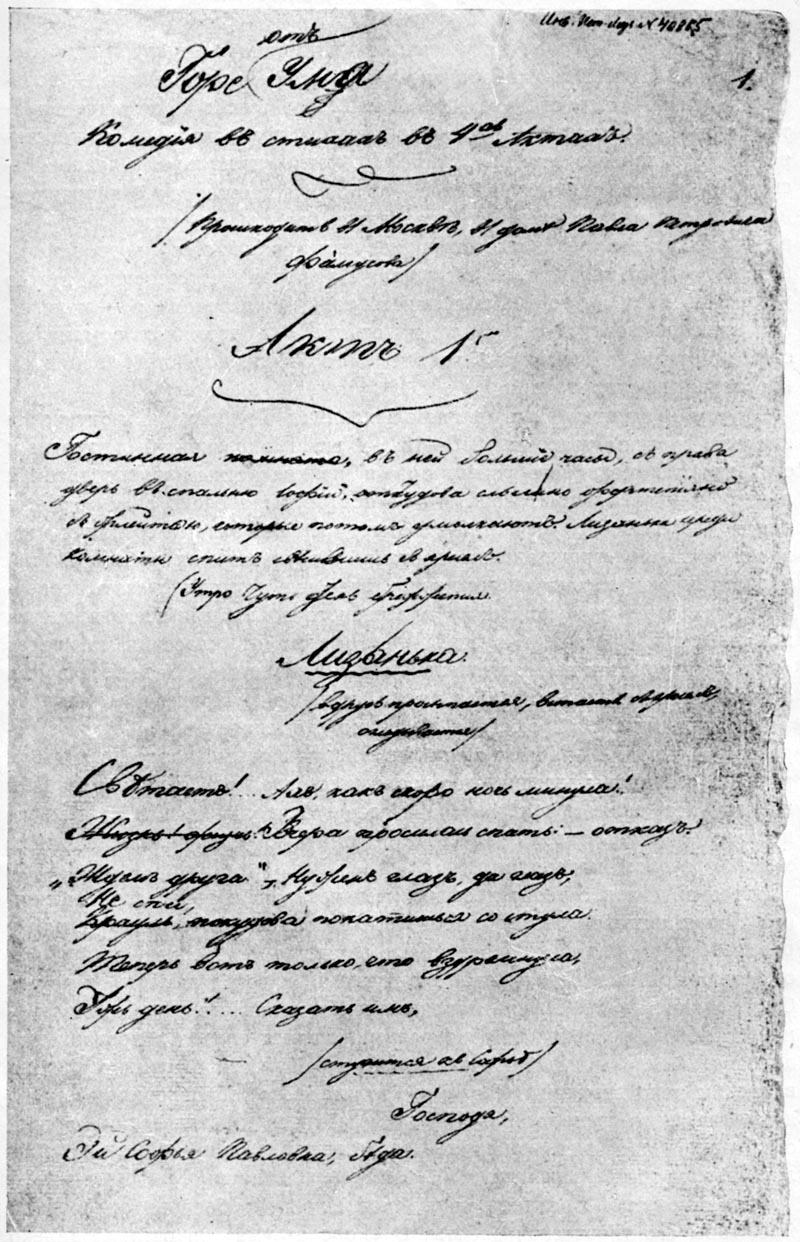 Инв. Ист. Лар. № 40885
1.
отъ
Горе Ума
Комедія въ стихахъ въ 4хъ Актахъ.
/Происходитъ в Москвѣ, в домѣ Павла Петровича
Фамусова/
Актъ 1й
Гостинная комната, въ ней большіе часы, съ права
дверь въ спальню Софіи, откудова слышно фортепіяно
съ флейтою, которые потомъ умолкаютъ. Лизанька среди
комнаты спитъ свѣсившись съ креселъ.
(Утро чуть день брежжится
Лизанька.
/вдругъ просыпается, встаетъ съ креселъ,
оглядывается/
Свѣтаетъ!... Ахъ, какъ скоро ночь минула!
Вчера просилась спать: – отказъ.
„Ждемъ друга." – Нуженъ глазъ, да глазъ,
Не спи,
покудова покатишься со стула.
Теперь вотъ только, что вздремнула,
Ужъ день!.... Сказать имъ,
/стучится къ Софьѣ/
Господа,
Эй Софья Павловна, бѣда.